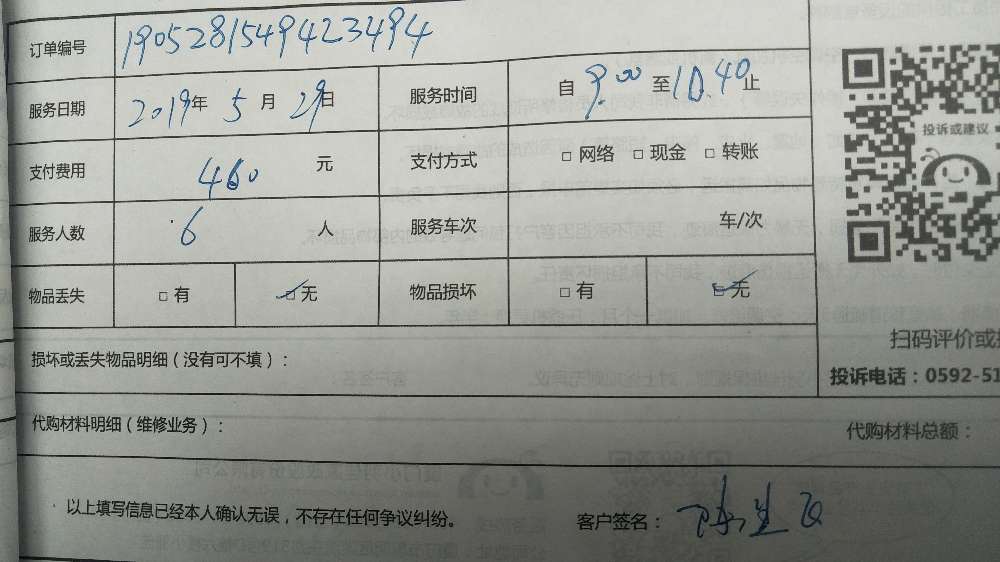 订单编号 1905281549423494
服务日期 2019年 5月 29日 服务时间 自 9.00 至 10.40 止
支付费用 460 元 支付方式 □ 网络 □ 现金 □ 转账
服务人数 6 人 服务车次 车/次
物品丢失 □ 有 ☑ 无 物品损坏 □ 有 ☑ 无
投诉或建议
扫码评价或
投诉电话：0592-51
损坏或丢失物品明细（没有可不填）：
代购材料明细（维修业务）： 代购材料总额：
以上填写信息已经本人确认无误，不存在任何争议纠纷。 客户签名：